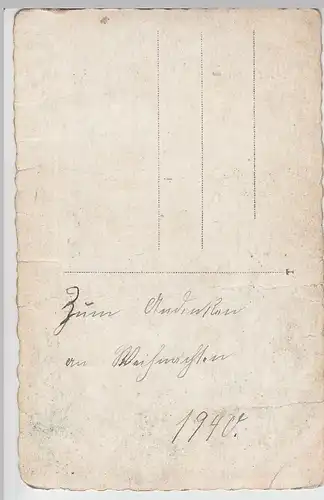 Zum Andenken
an Weihnachten
1940.